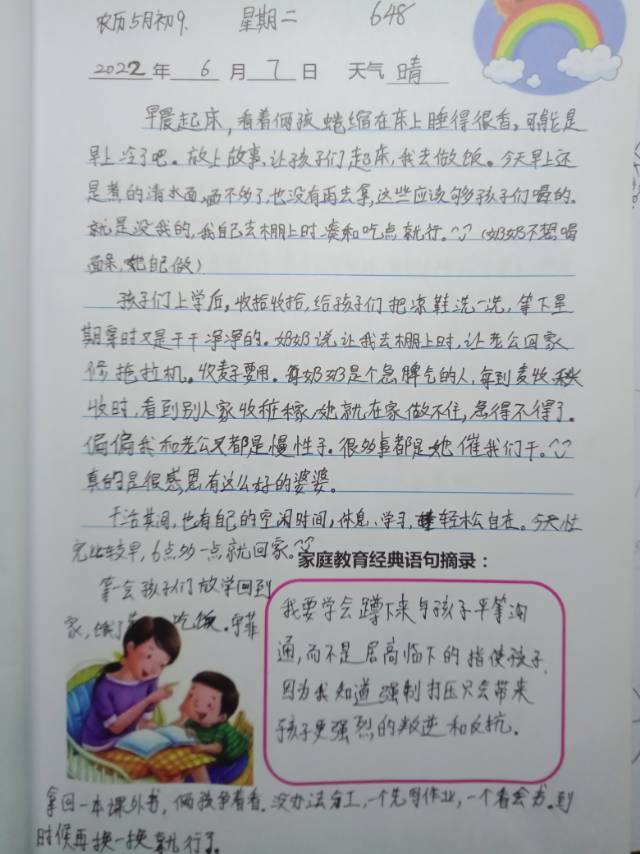 农历5月初9. 星期二 648
2022年 6 月 7 日 天气 晴
早晨起床,看着俩孩蜷缩在床上睡得很香,可能是
早上冷了吧。放上故事,让孩子们起床,我去做饭。今天早上还
是煮的清水面,面不多了,也没有再去拿,这些应该够孩子们喝的。
就是没我的,我自己去棚上时凑和吃点就行。(奶奶不想喝
面条,她自己做)
孩子们上学后,收拾收拾,给孩子们把凉鞋洗一洗,等下星
期穿时又是干干净净的。奶奶说让我去棚上时,让老公回家
修拖拉机。收麦子要用。奶奶是个急脾气的人,每到麦收秋
收时,看到别人家收庄稼,她就在家做不住,急得不得了。
偏偏我和老公又都是慢性子。很多事都是她催我们干。
真的是很感恩有这么好的婆婆。
干活其间,也有自己的空闲时间,休息、学习,轻松自在。今天忙
完比较早,6点多一点就回家。
家庭教育经典语句摘录:
等一会孩子们放学回到
家,饿了 吃饭。
我要学会蹲下来与孩子平等沟
通,而不是居高临下的指使孩子.
因为我知道强制打压只会带来
孩子更强烈的叛逆和反抗.
拿回一本课外书,俩孩争着看.没办法分工,一个先写作业,一个看会书.到
时候再换一换就行了。